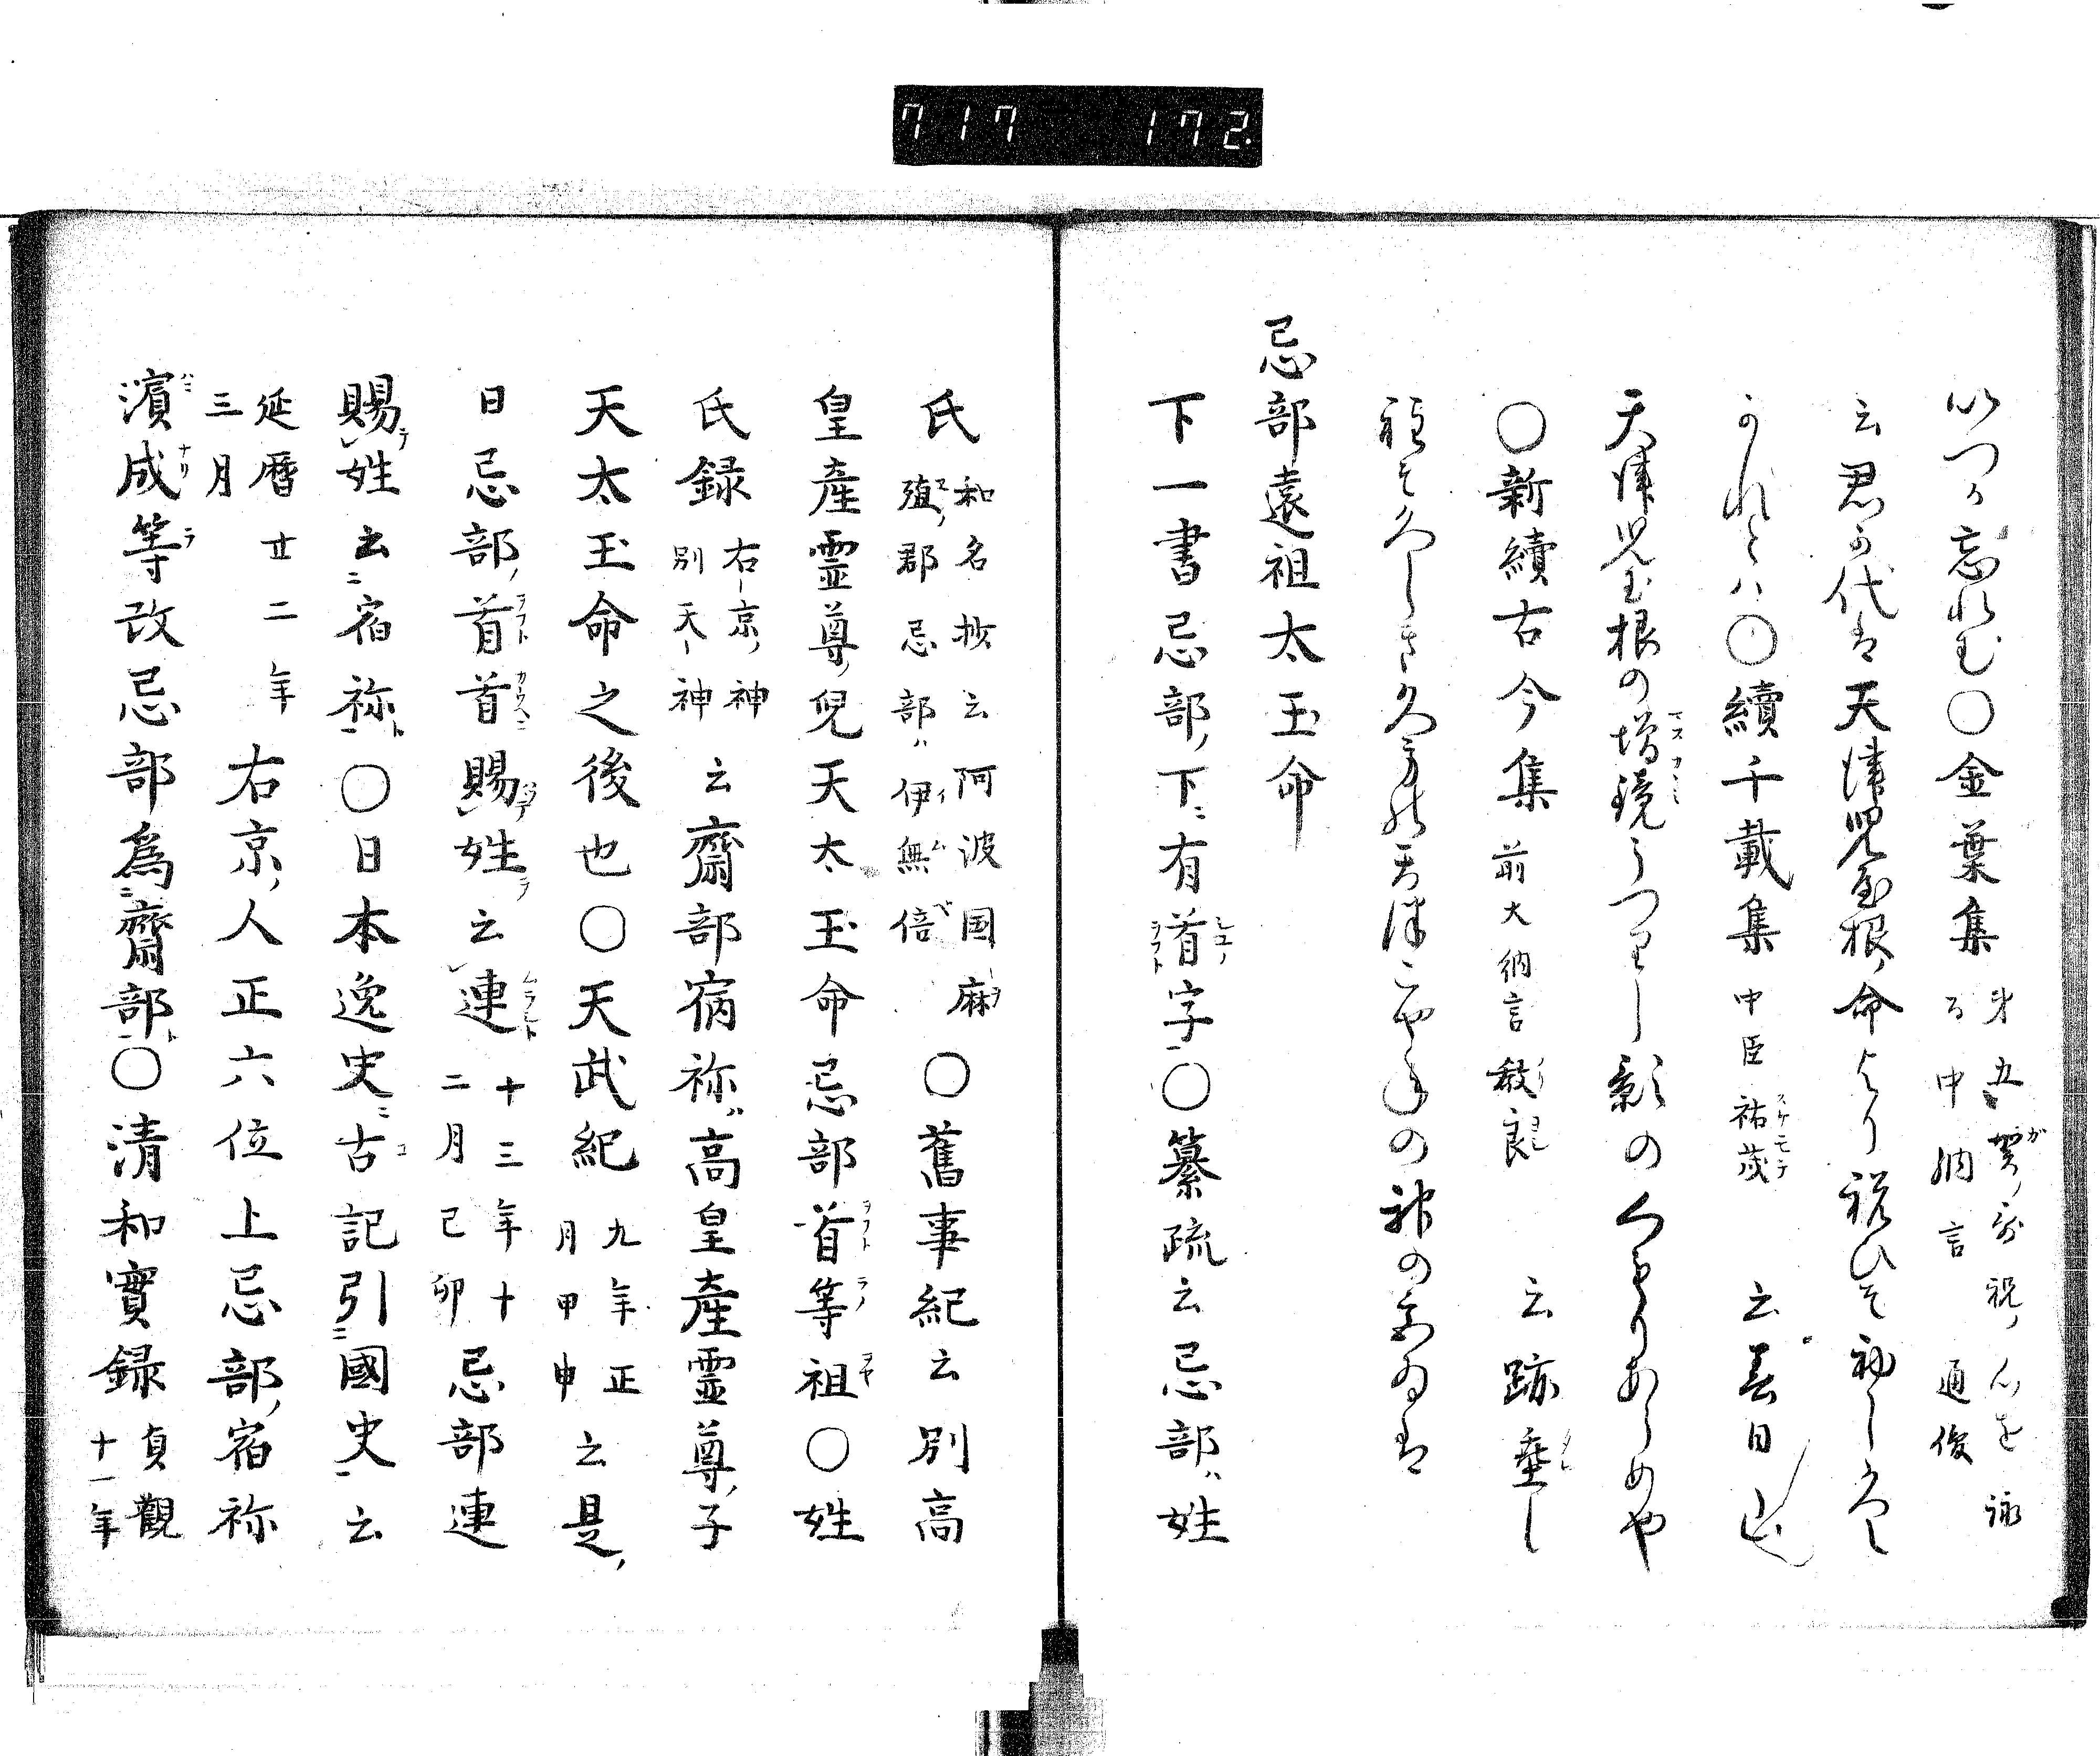 717 172.
いつか忘れむ○金葉集 年五賀ノ哥祝ノ心を詠る中納言通俊
云君か代は天津児屋根ノ命より祝ひそ初し久し
かれとハ○續千載集 中臣祐茂 云春日山
天津児屋根の増鏡うつりし影のくもりあらめや
○新續古今集 前大納言教良 云跡垂し
程そ久しき久方の天津こやねの神の宮ゐは
忌部遠祖太玉命
下一書忌部ノ下ニ有首字○纂疏云忌部ハ姓
氏 和名抄云阿波国麻殖ノ郡忌部ハ伊無倍 ○舊事紀云別高
皇産霊尊ノ児天太玉命忌部首等祖○姓
氏録 右京ノ神別天神 云齋部宿祢ハ高皇産霊尊ノ子
天太玉命之後也○天武紀 九年正月甲申 云是ノ
日忌部ノ首首賜姓ヲ云連 十三年十二月己卯 忌部連
賜テ姓云宿祢ト○日本逸史ニ古記引國史云
延暦廿二年三月 右京ノ人正六位上忌部ノ宿祢
濱成等改忌部為齋部ト○清和實録 貞觀十一年